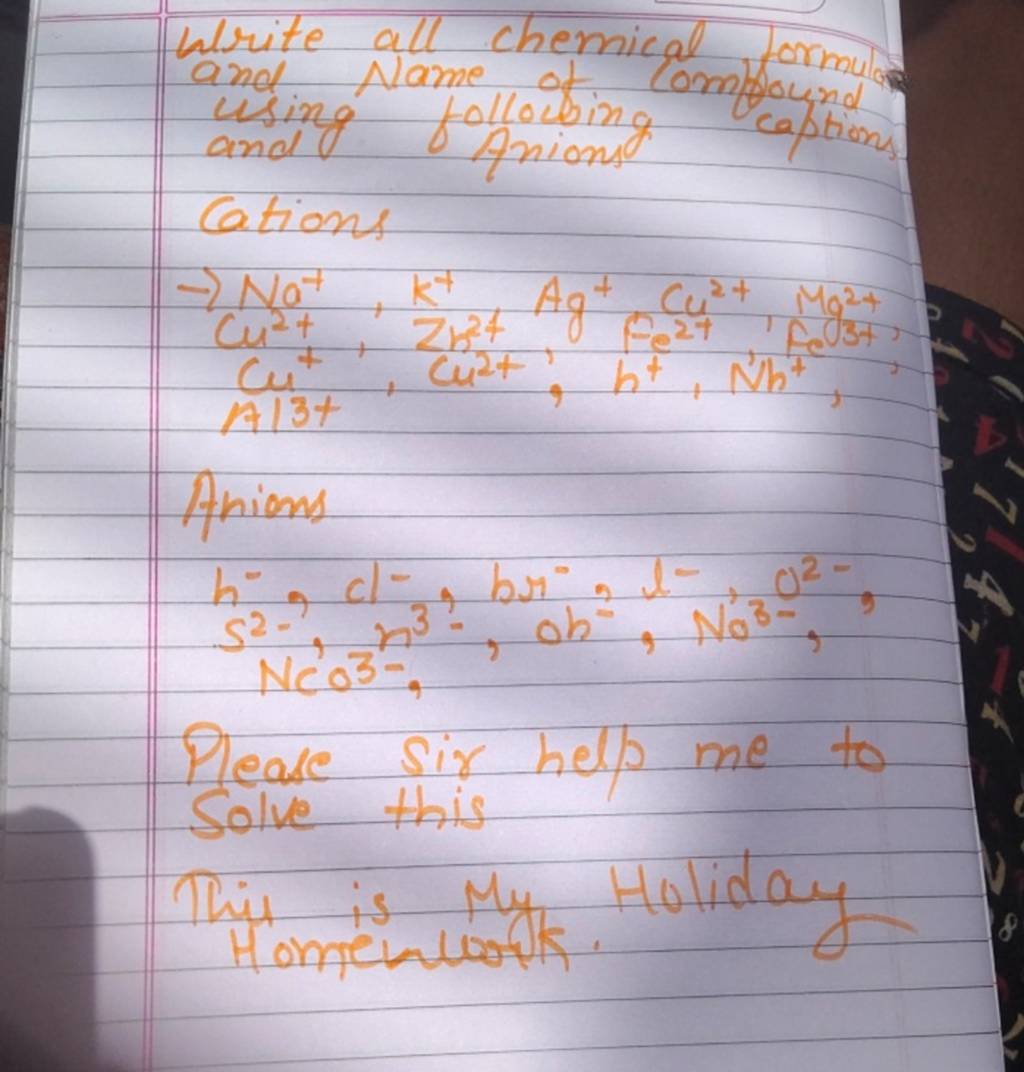 Write all chemical formula
and Name of Compound
using following captions
and Anions
Cations
→ Na+, K+, Ag+ Cu2+, Mg2+
Cu2+, Zn2+, Fe2+, Fe3+,
Cu+, Cu2+, h+, Nh+,
Al3+
Anions
h-, cl-, br-, I-, O2-,
s2-, n3-, oh-, No3-,
Nco3-,
Please Sir help me to
Solve this
This is My Holiday
Homenwork.